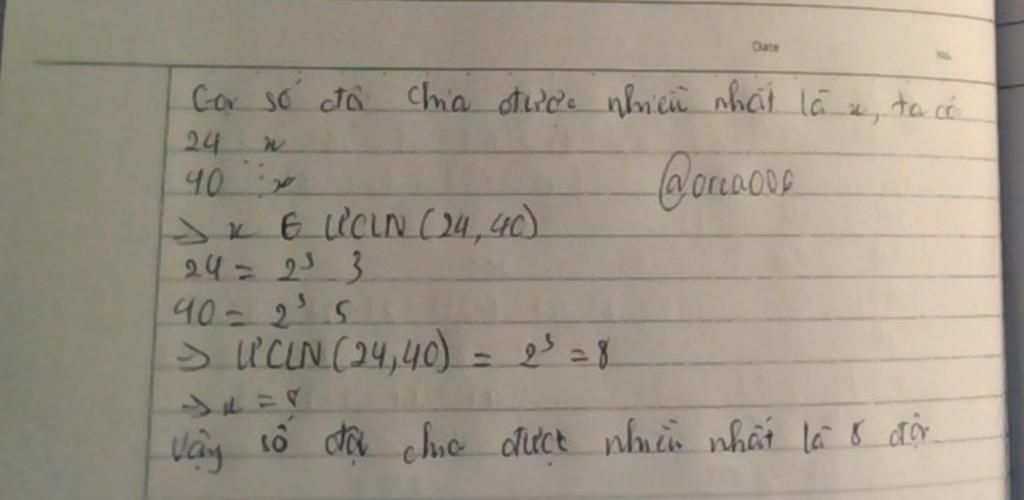 Date No.
Gọi số đội chia được nhiều nhất là x, ta có
24 ⋮ x
40 ⋮ x
@orea006
=> x ∈ ƯCLN(24,40)
24 = 2³ 3
40 = 2³ 5
=> ƯCLN(24,40) = 2³ = 8
=> x = 8
Vậy số đội chia được nhiều nhất là 8 đội